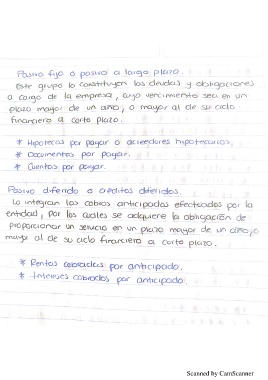 Pasivo fijo o pasivo a largo plazo.
Este grupo lo constituyen las deudas y obligaciones
a cargo de la empresa, cuyo vencimiento sea en un
plazo mayor de un año, o mayor al de su ciclo
financiero a corto plazo.
* Hipotecas por pagar o acreedores hipotecarios.
* Documentos por pagar.
* Cuentas por pagar.
Pasivo diferido o créditos diferidos.
Lo integran los cobros anticipados efectuados por la
entidad, por los cuales se adquiere la obligación de
proporcionar un servicio en un plazo mayor de un año, o
mayor al de su ciclo financiero a corto plazo.
* Rentas cobradas por anticipado.
* Intereses cobrados por anticipado.
Scanned by CamScanner